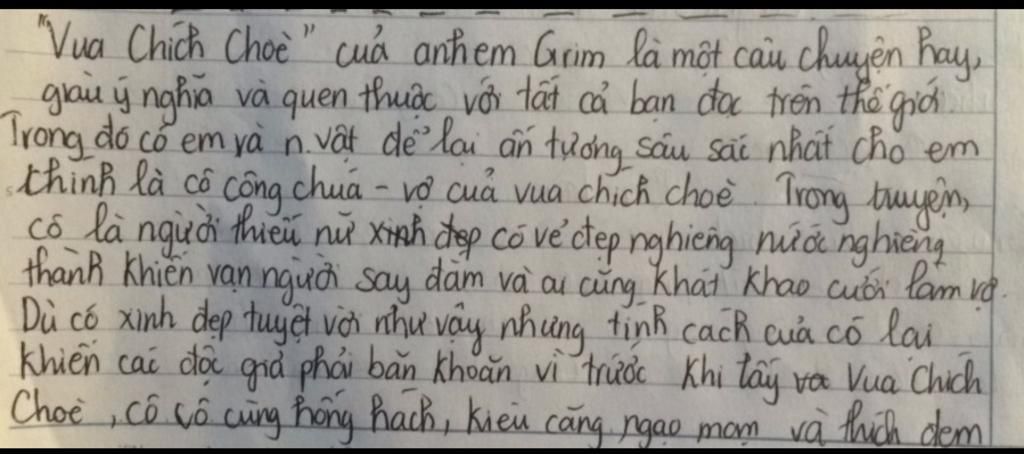 "Vua Chích Choè" cuả anh em Grim là một câu chuyện hay,
giàu ý nghĩa và quen thuộc với tất cả bạn đọc trên thế giới.
Trong đó có em và n.vật để lại ấn tượng sâu sắc nhất cho em
chính là cô công chuá - vợ cuả vua chích choè. Trong truyện,
cô là người thiếu nữ xinh đẹp có vẻ đẹp nghiêng nước nghiêng
thành khiến vạn người say đắm và ai cũng khát khao cưới làm vợ.
Dù có xinh đẹp tuyệt vời như vậy nhưng tính cách cuả cô lại
khiến các độc giả phải băn khoăn vì trước khi lấy Vua Chích
Choè, cô vô cùng hống hách, kiêu căng, ngạo mạn và thích đem